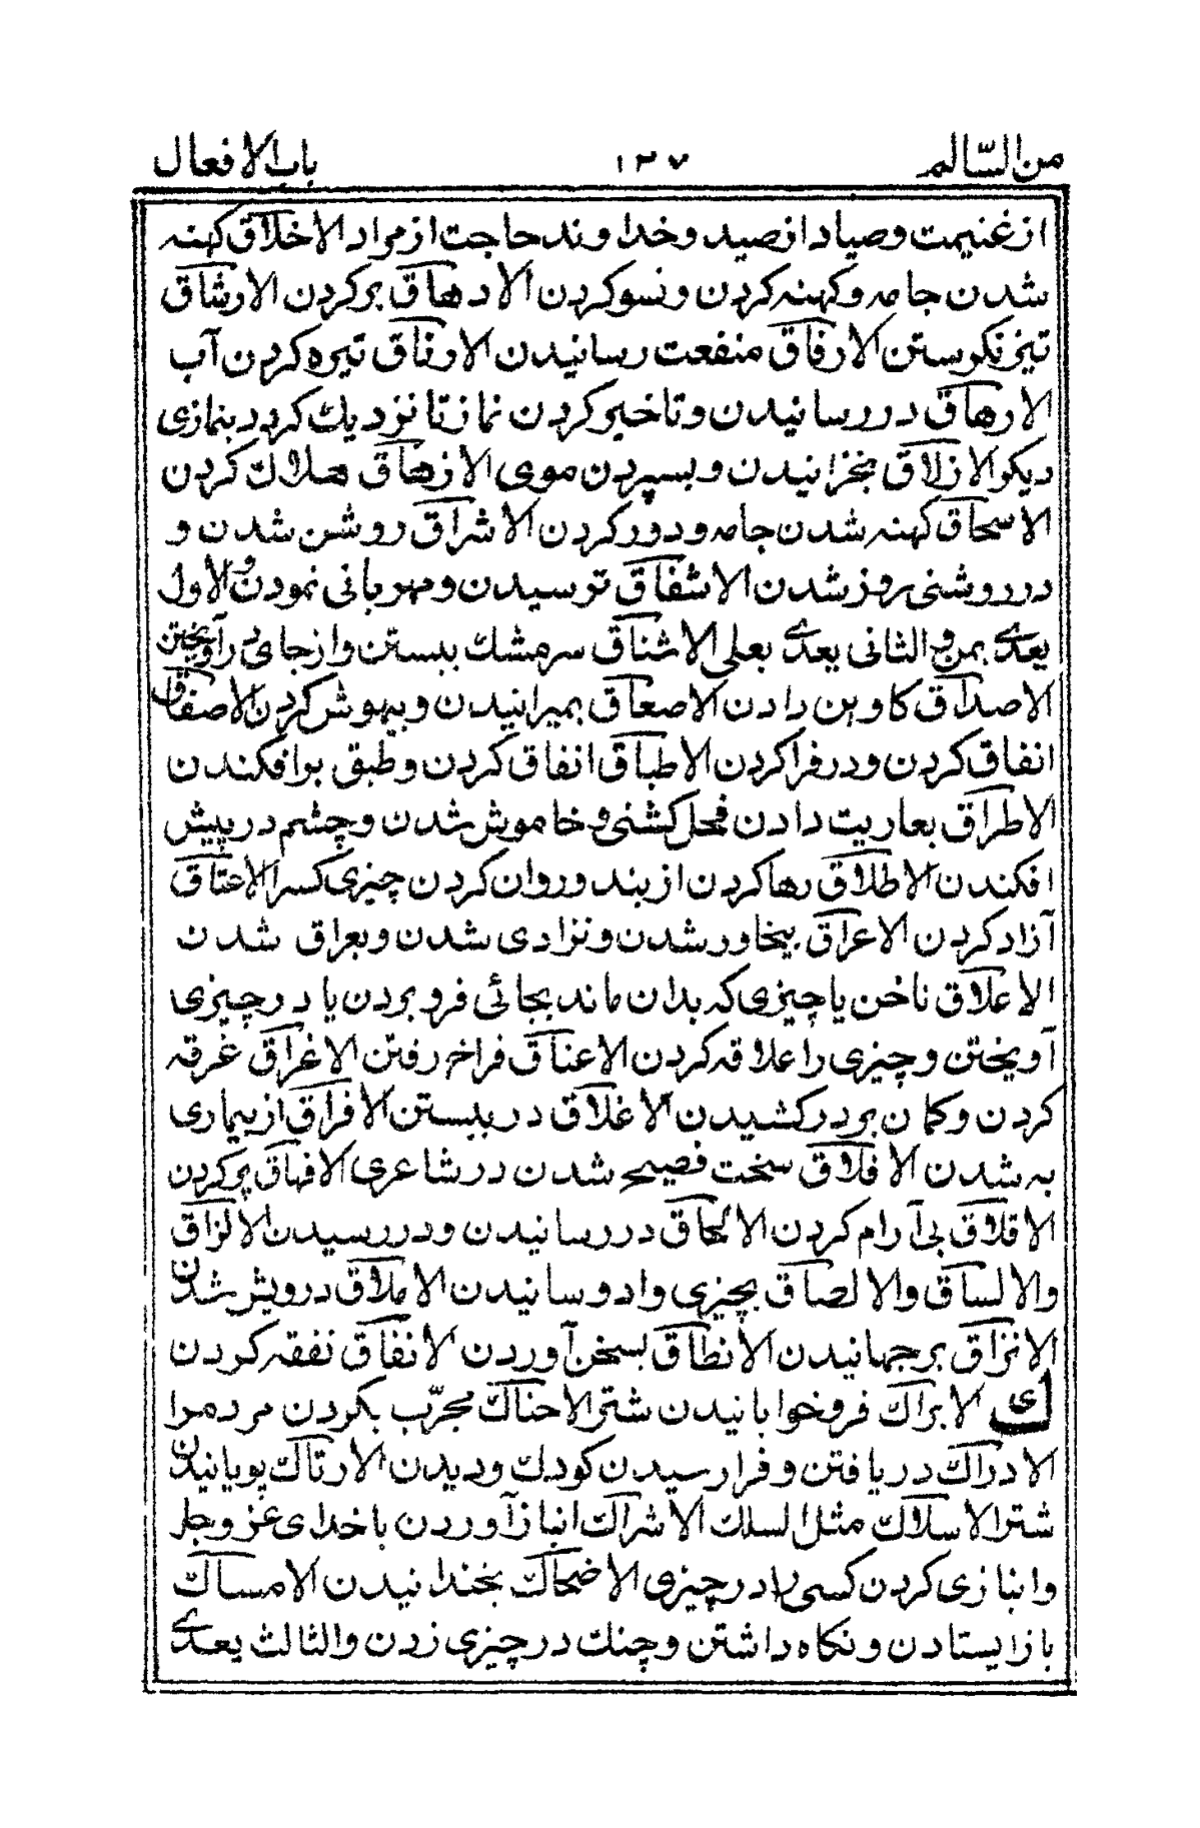 من السّالم ١٣٧ باب الافعال
از غنیمت و صیاد از صید و خداوند حاجت از مراد الاخلاق کهنه
شدن جامه و کهنه کردن و نسو کردن الادهاق پر کردن الارشاق
تیز نکریستن الارفاق منفعت رسانیدن الارناق تیره کردن آب
الارهاق در رسانیدن و تاخیر کردن نماز تا نزدیك کردد بنمازی
دیکر الازلاق بخزانیدن و بسپردن موی الازهاق هلاك کردن
الاسحاق کهنه شدن جامه و دور کردن الاشراق روشن شدن و
در روشنی روز شدن الاشفاق ترسیدن و مهربانی نمودن و الاول
یعدی بمن و الثانی یعدی بعلی الاشناق سر مشك ببستن و از جای در آویختن
الاصداق کاوین دادن الاصعاق بمیرانیدن و بیهوش کردن الاصفاق
انفاق کردن و در فرا کردن الاطباق انفاق کردن و طبق بر افکندن
الاطراق بعاریت دادن فحل کشنی و خاموش شدن و چشم در پیش
افکندن الاطلاق رها کردن از بند و روان کردن چیزی کسرا الاعتاق
آزاد کردن الاعراق بیخاور شدن و نزادی شدن و بعراق شدن
الاعلاق ناخن یا چیزی که بدان ماند بجائی فرو بردن یا در چیزی
آویختن و چیزی را علاقه کردن الاعناق فراخ رفتن الاغراق غرقه
کردن و کمان بر در کشیدن الاغلاق در ببستن الافراق از بیماری
به شدن الافلاق سخت فصیح شدن در شاعری الافهاق پر کردن
الاقلاق بی آرام کردن الالحاق در رسانیدن و در رسیدن الالزاق
والالساق والالصاق بچیزی وادوسانیدن الاملاق درویش شدن
الانزاق بر جهانیدن الانطاق بسخن آوردن الانفاق نفقه کردن
ك الابراك فرو خوابانیدن شتر الاحناك مجرّب بکردن مردم را
الادراك در یافتن و فرا رسیدن کودك و دیدن الارتاك پویانیدن
شتر الاسلاك مثل السلك الاشراك انباز آوردن با خدای عز و جل
و انبازی کردن کسی را در چیزی الاضحاك بخندانیدن الامساك
باز ایستادن و نکاه داشتن و چنك در چیزی زدن والثالث یعدی